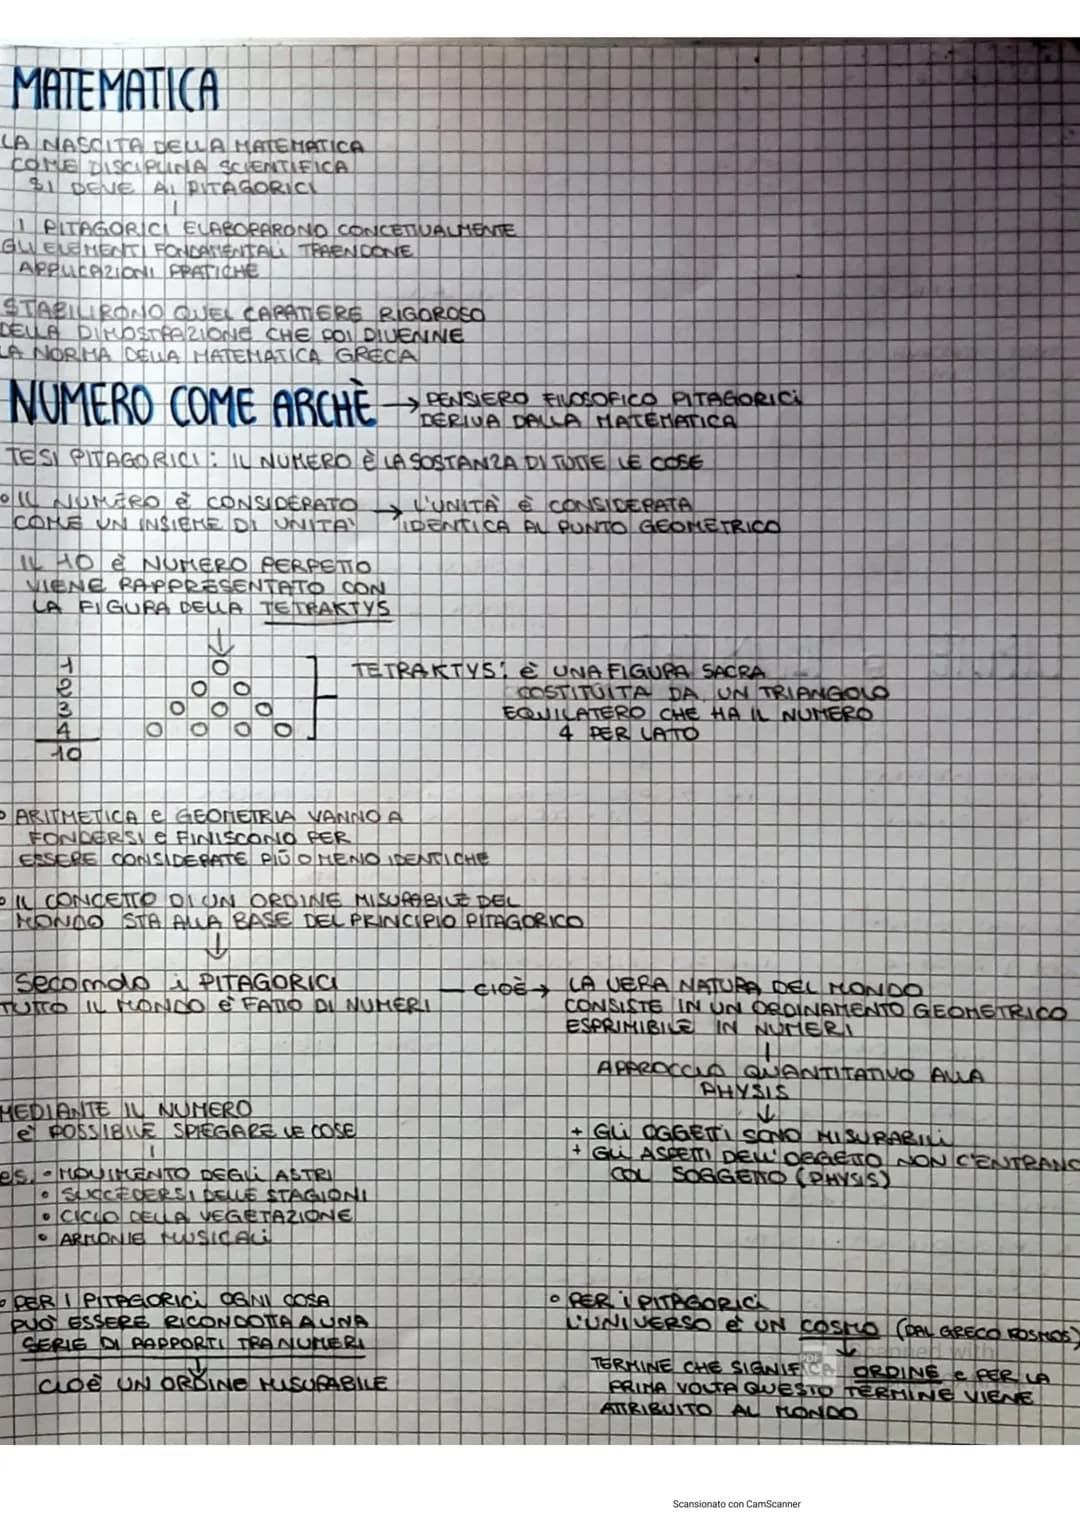 MATEMATICA
LA NASCITA DELLA MATEMATICA
COME DISCIPLINA SCIENTIFICA
SI DEVE AI PITAGORICI
I PITAGORICI ELABORARONO CONCETTUALMENTE
GLI ELEMENTI FONDAMENTALI TRAENDONE
APPLICAZIONI PRATICHE
STABILIRONO QUEL CARATTERE RIGOROSO
DELLA DIMOSTRAZIONE CHE POI DIVENNE
LA NORMA DELLA MATEMATICA GRECA
NUMERO COME ARCHÈ → PENSIERO FILOSOFICO PITAGORICI
DERIVA DALLA MATEMATICA
TESI PITAGORICI: IL NUMERO È LA SOSTANZA DI TUTTE LE COSE
• IL NUMERO È CONSIDERATO → L'UNITÀ È CONSIDERATA
COME UN INSIEME DI UNITÀ IDENTICA AL PUNTO GEOMETRICO
IL 10 È NUMERO PERFETTO
VIENE RAPPRESENTATO CON
LA FIGURA DELLA TETRAKTYS
1
2
3
4
10
TETRAKTYS: È UNA FIGURA SACRA
COSTITUITA DA UN TRIANGOLO
EQUILATERO CHE HA IL NUMERO
4 PER LATO
• ARITMETICA E GEOMETRIA VANNO A
FONDERSI E FINISCONO PER
ESSERE CONSIDERATE PIÙ O MENO IDENTICHE
• IL CONCETTO DI UN ORDINE MISURABILE DEL
MONDO STA ALLA BASE DEL PRINCIPIO PITAGORICO
Secondo i PITAGORICI
TUTTO IL MONDO È FATTO DI NUMERI
CIOÈ → LA VERA NATURA DEL MONDO
CONSISTE IN UN ORDINAMENTO GEOMETRICO
ESPRIMIBILE IN NUMERI
APPROCCIO QUANTITATIVO ALLA
PHYSIS
+ GLI OGGETTI SONO MISURABILI
+ GLI ASPETTI DELL'OGGETTO NON C'ENTRANO
COL SOGGETTO (PHYSIS)
MEDIANTE IL NUMERO
È POSSIBILE SPIEGARE LE COSE
es. • MOVIMENTO DEGLI ASTRI
• SUCCEDERSI DELLE STAGIONI
• CICLO DELLA VEGETAZIONE
• ARMONIE MUSICALI
• PER I PITAGORICI OGNI COSA
PUÒ ESSERE RICONDOTTA A UNA
SERIE DI RAPPORTI TRA NUMERI
CIOÈ UN ORDINE MISURABILE
• PER I PITAGORICI
L'UNIVERSO È UN COSMO (DAL GRECO KOSMOS)
TERMINE CHE SIGNIFICA ORDINE E PER LA
PRIMA VOLTA QUESTO TERMINE VIENE
ATTRIBUITO AL MONDO
Scansionato con CamScanner